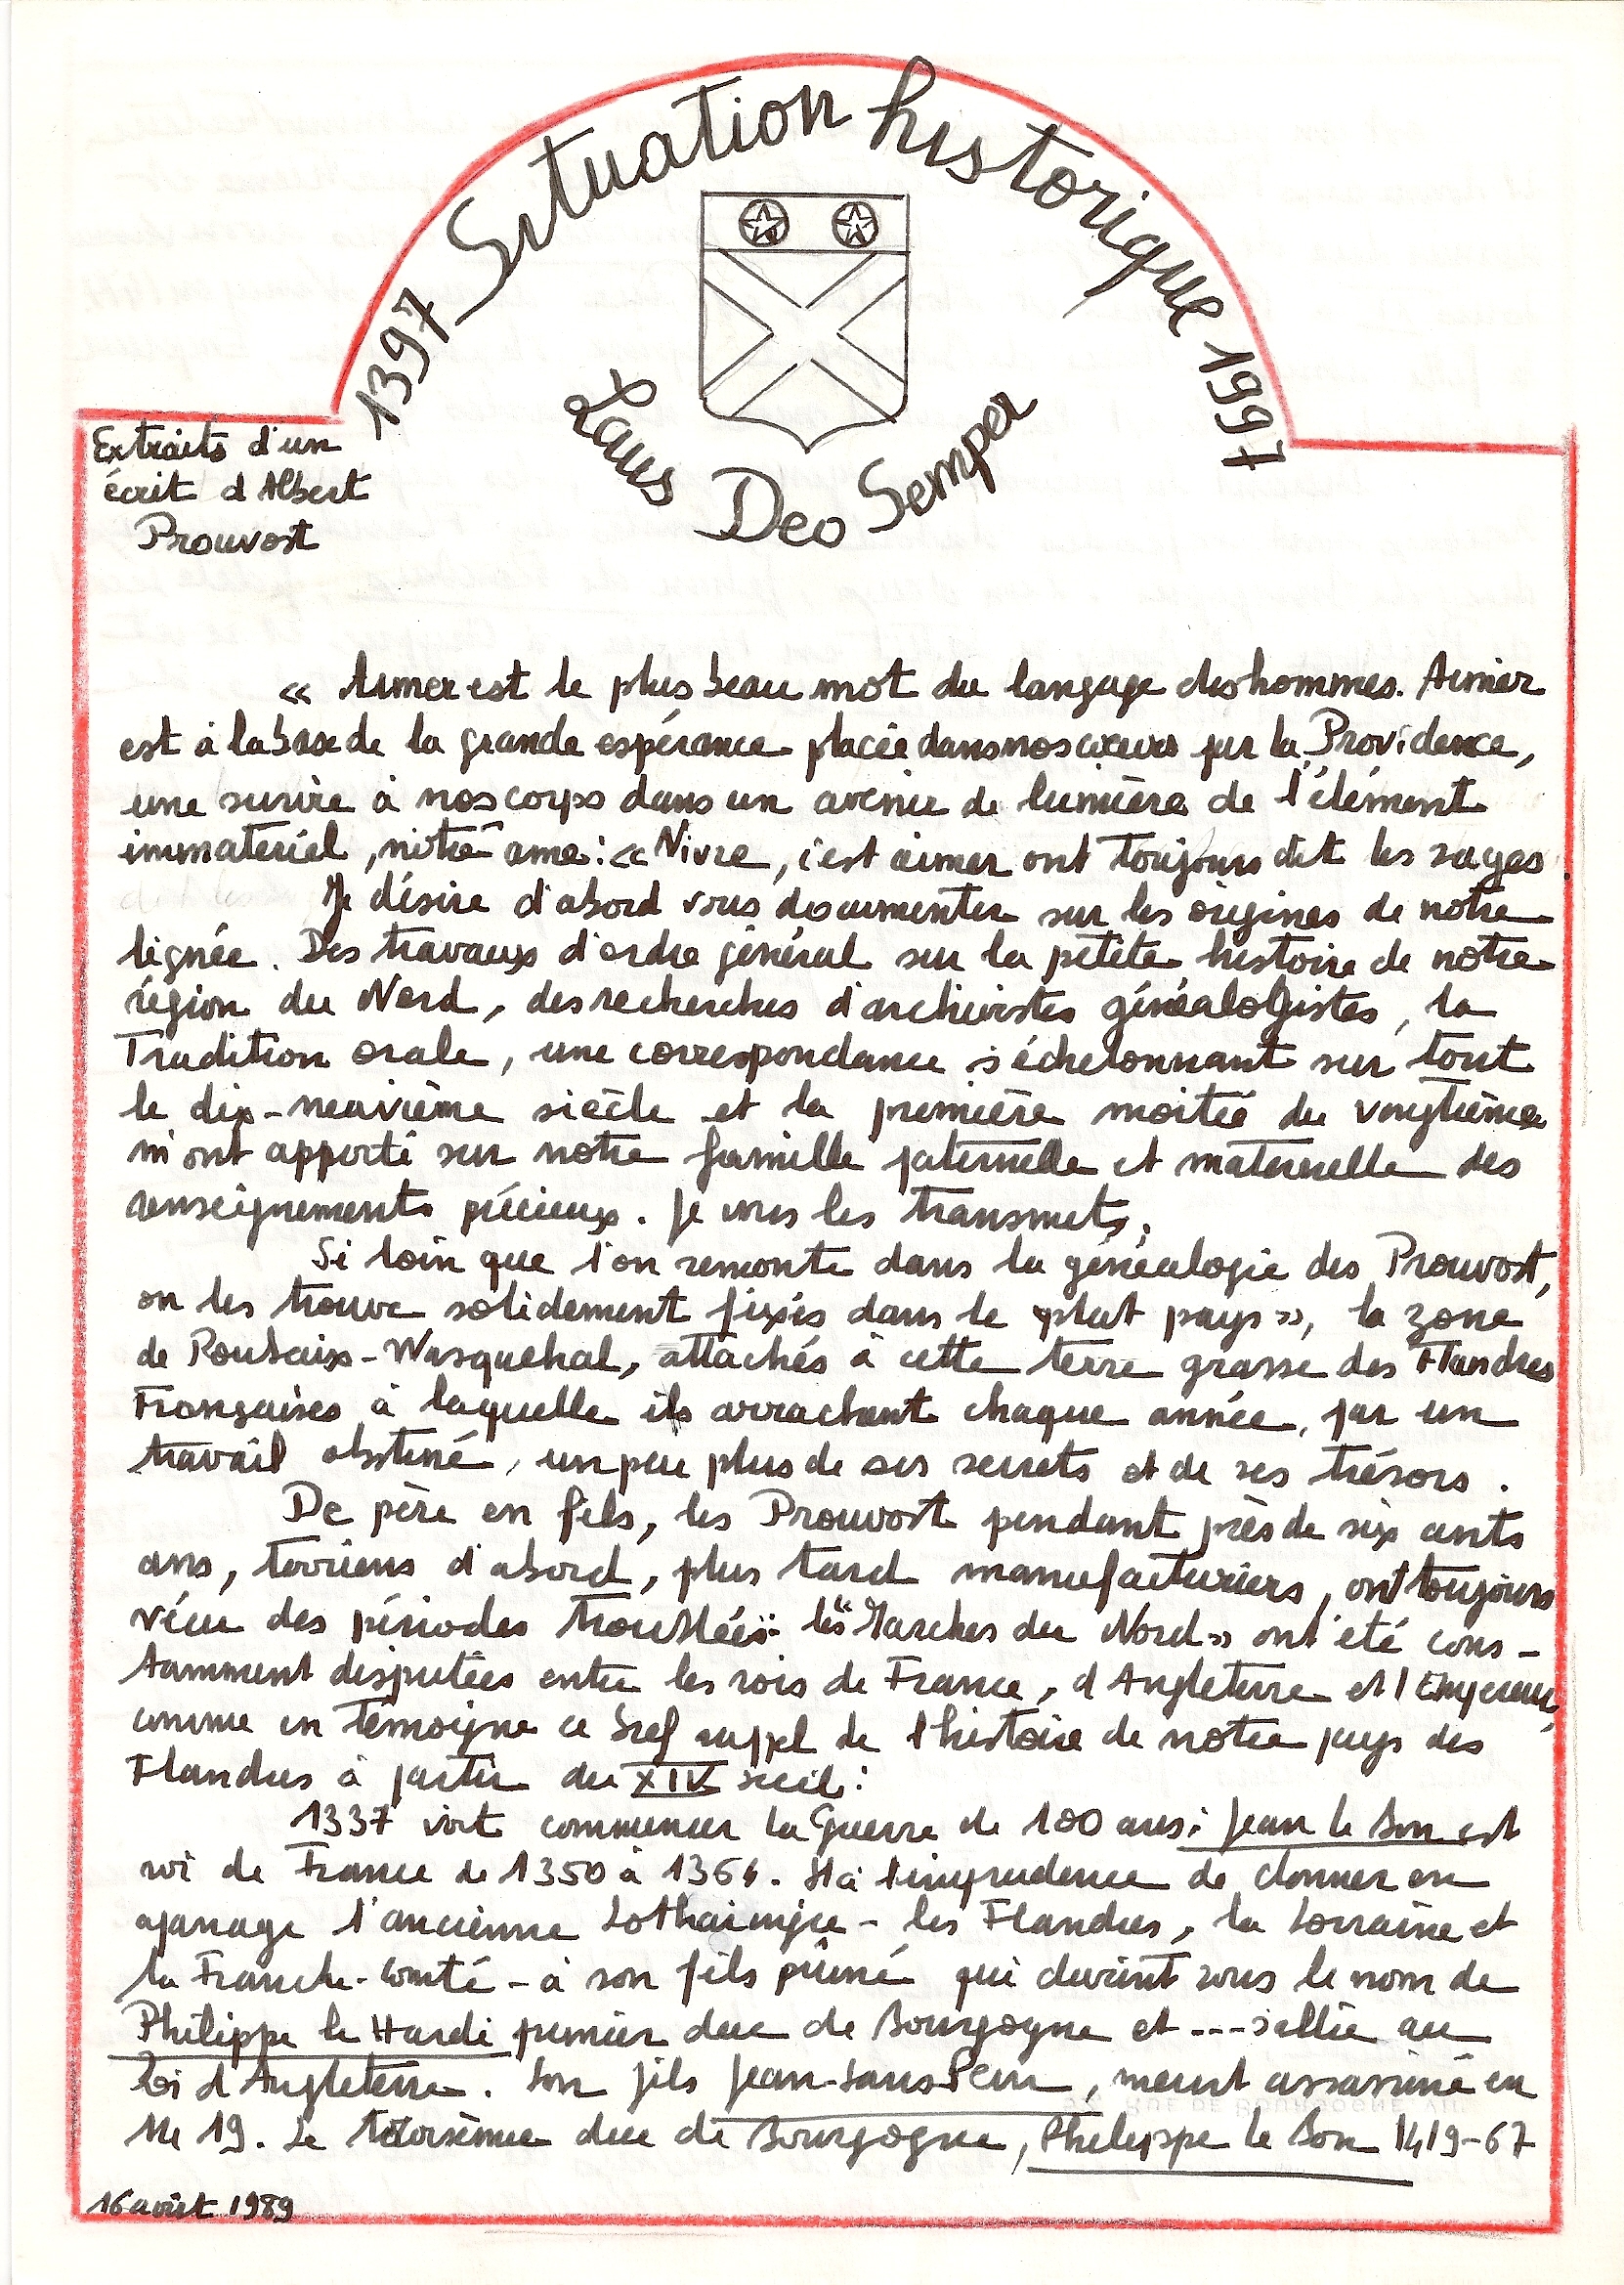 1397 Situation historique 1997
Laus Deo Semper
Extraits d'un
écrit d'Albert
Prouvost
« Aimer est le plus beau mot du langage des hommes. Aimer
est à la base de la grande espérance placée dans nos cœurs par la Providence,
une survie à nos corps dans un avenir de lumière de l'élément
immatériel, nôtre âme : « Vivre, c'est aimer ont toujours dit les sages.
Je désire d'abord vous documenter sur les origines de notre
lignée. Des travaux d'ordre général sur la petite histoire de notre
région du Nord, des recherches d'archivistes généalogistes, la
Tradition orale, une correspondance s'échelonnant sur tout
le dix-neuvième siècle et la première moitié du vingtième
m'ont apporté sur notre famille paternelle et maternelle des
renseignements précieux. Je vous les transmets.
Si loin que l'on remonte dans la généalogie des Prouvost,
on les trouve solidement fixés dans le « plat pays », la zone
de Roubaix-Wasquehal, attachés à cette terre grasse des Flandres
Françaises à laquelle ils arrachent chaque année, par un
travail obstiné, un peu plus de ses secrets et de ses trésors.
De père en fils, les Prouvost pendant près de six cents
ans, terriens d'abord, plus tard manufacturiers, ont toujours
vécu des périodes troublées : les "Marches du Nord » ont été cons-
tamment disputées entre les rois de France, d'Angleterre et l'Empereur,
comme en témoigne ce bref rappel de l'histoire de notre pays des
Flandres à partir du XIV siècle :
1337 voit commencer la Guerre de 100 ans : Jean le Bon est
roi de France de 1350 à 1364. Il a l'imprudence de donner en
apanage l'ancienne Lotharingie - les Flandres, la Lorraine et
la Franche-Comté - à son fils puiné qui devint sous le nom de
Philippe le Hardi premier duc de Bourgogne et --- s'allie au
Roi d'Angleterre. Son fils Jean-Sans-Peur, meurt assassiné en
1419. Le troisième duc de Bourgogne, Philippe le Bon 1419-67
16 août 1989